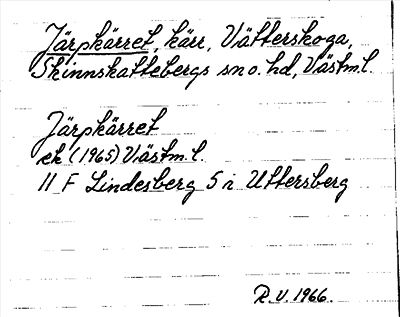 Järpkärret, kärr, Vätterskoga,
Skinnskattebergs sn o. hd, Västm.l.
Järpkärret
ek (1965) Västm.l.
11 F Lindesberg 5 i Uttersberg
R.V. 1966.